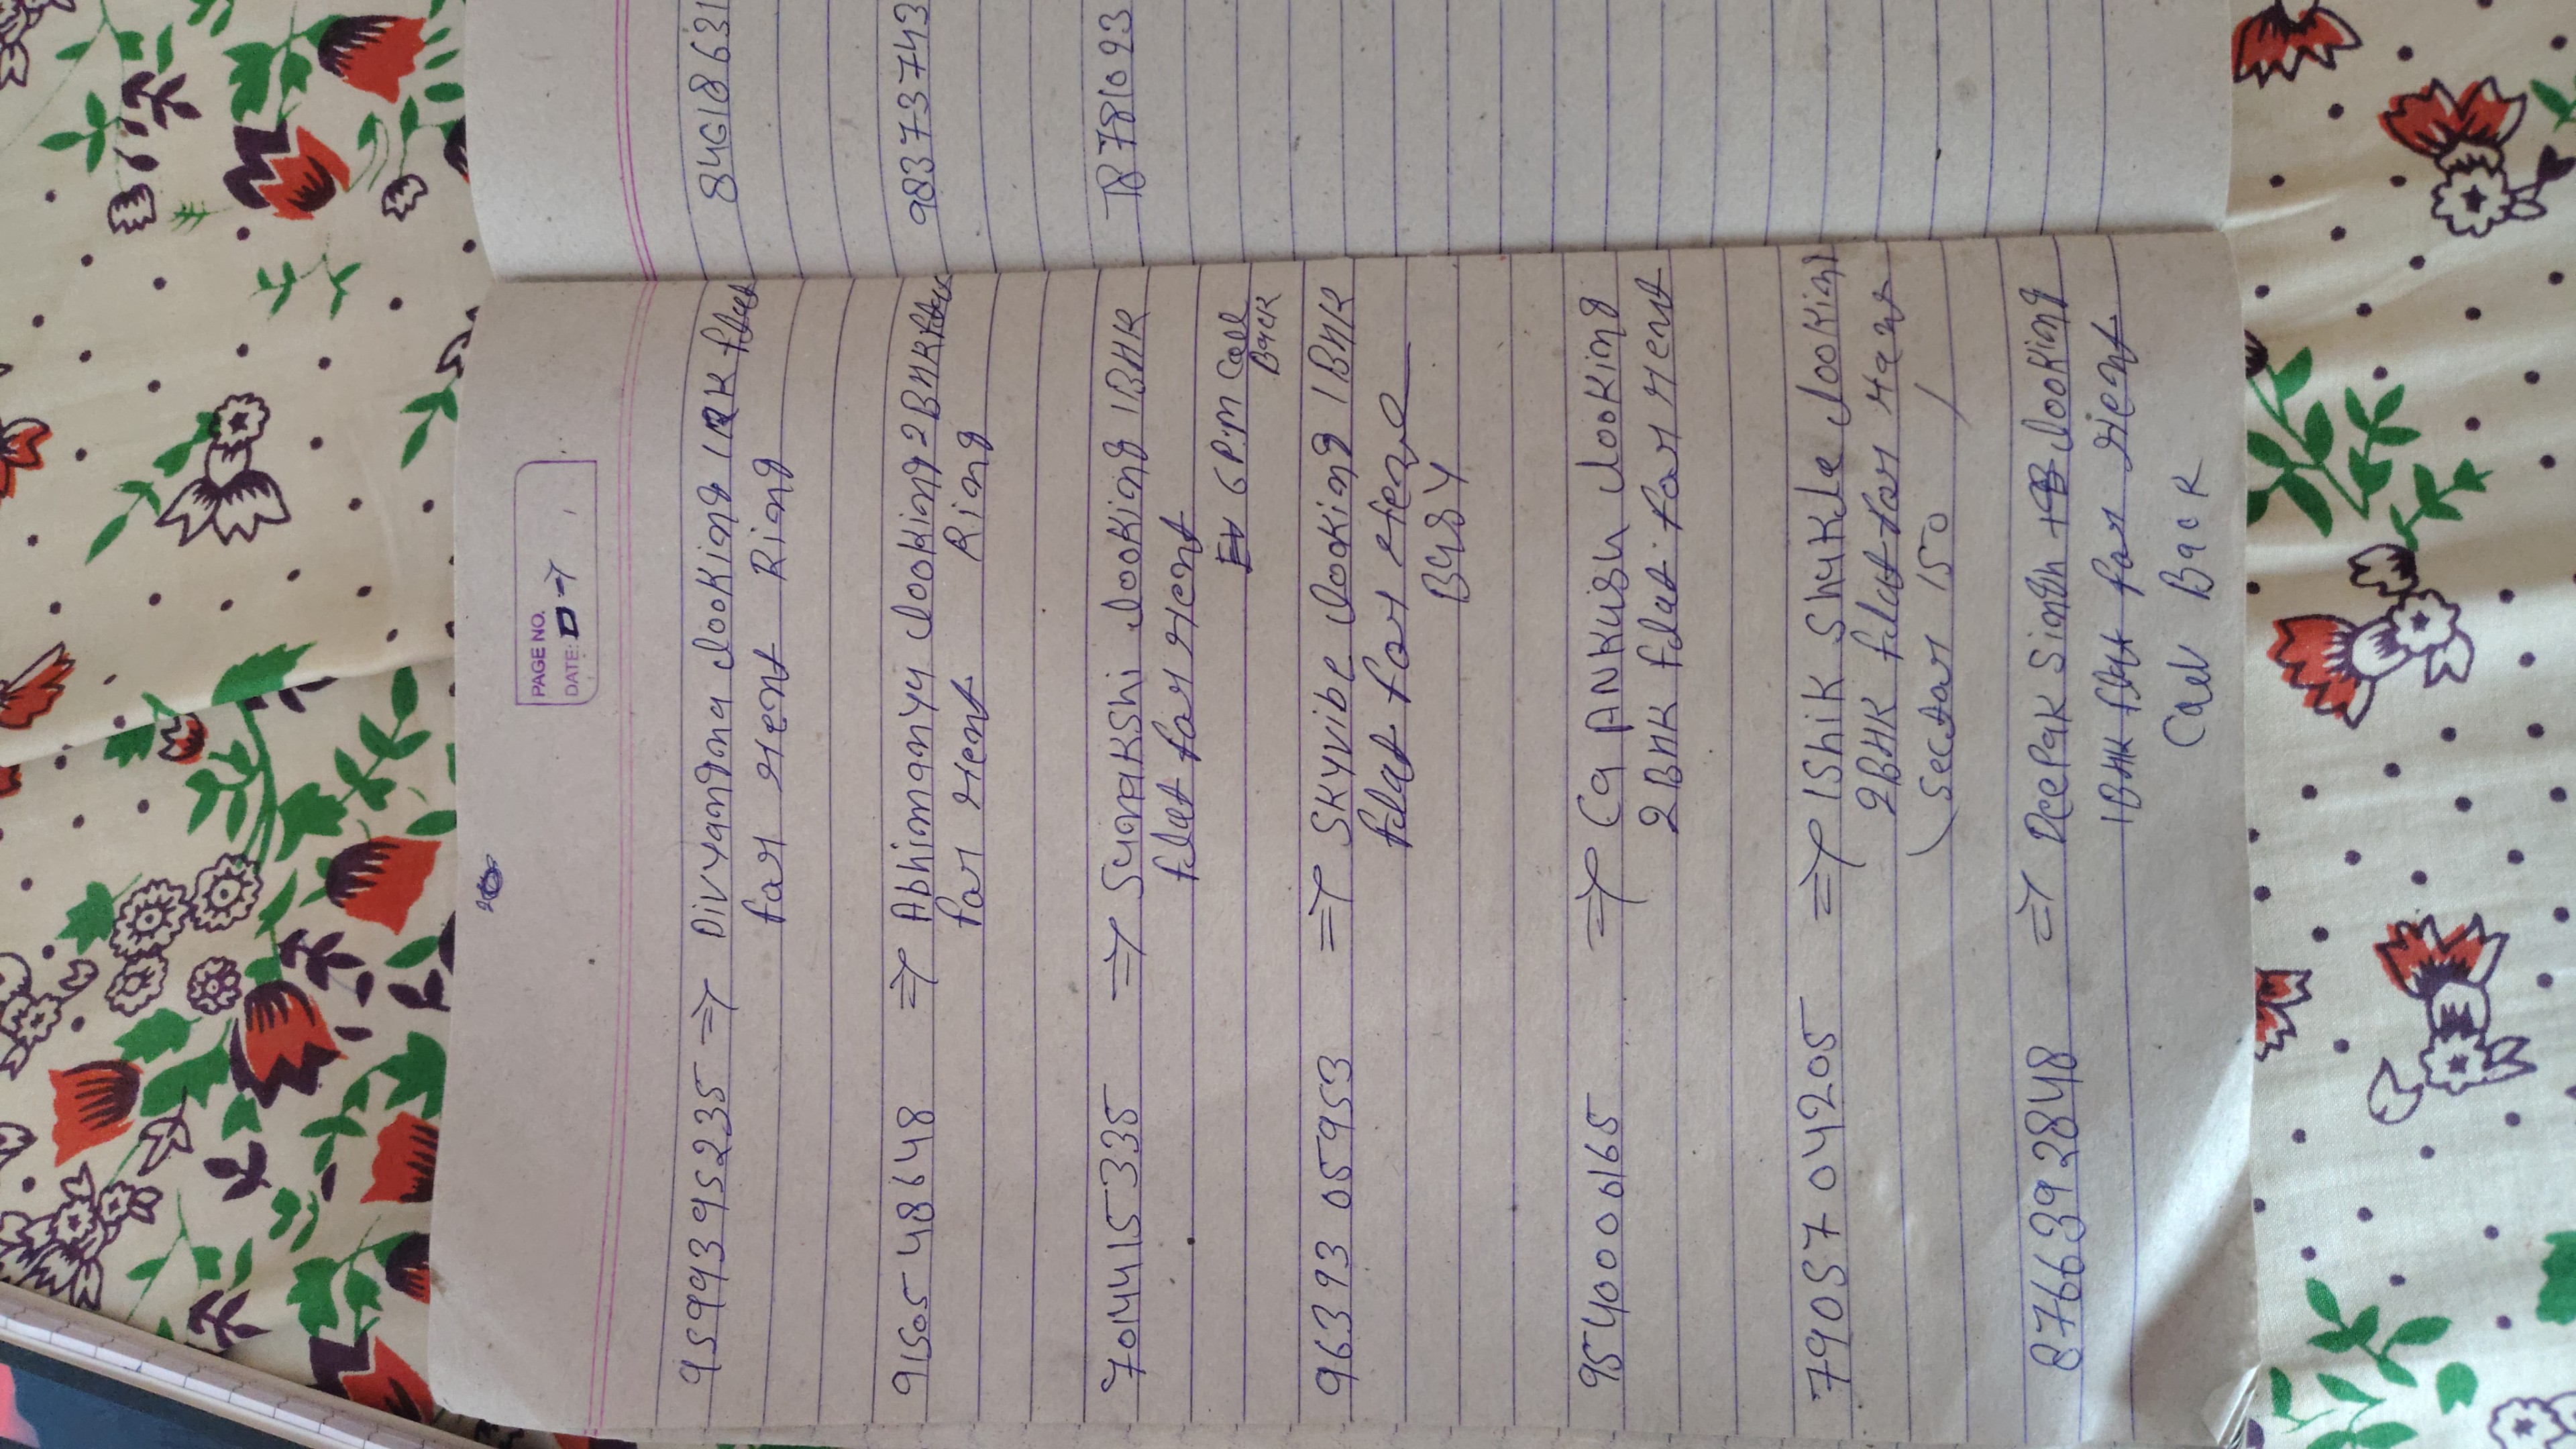 PAGE NO.
DATE:
9599439523 5 => Divyangna looking 1RK flat
for rent Ring
9150548648 => Abhimanyu looking 2BHK flat
for rent Ring
7014415335 => Sunakshi looking 1BHK
flat for rent
6 P.M Call
Back
9639305953 => Skyvibe looking 1BHK
flat for rent
Busy
9540000165 => Ca ANKUSH looking
2 BHK flat for rent
7905704205 => Ishik Shukla looking
2BHK flat for
(Sector 150)
8766392848 => Deepak Singh looking
1BHK flat for rent
Call Back
846186 31
98373743
78781093